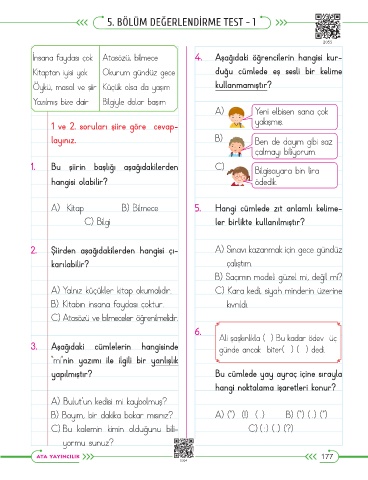 5. BÖLÜM DEĞERLENDİRME TEST - 1
İnsana faydası çok
Kitaptan iyisi yok
Öykü, masal ve şiir
Yazılmış bize dair
Atasözü, bilmece
Okurum gündüz gece
Küçük olsa da yaşım
Bilgiyle dolar başım
1 ve 2. soruları şiire göre cevap-
layınız.
1. Bu şiirin başlığı aşağıdakilerden
hangisi olabilir?
A) Kitap B) Bilmece
C) Bilgi
2. Şiirden aşağıdakilerden hangisi çı-
karılabilir?
A) Yalnız küçükler kitap okumalıdır.
B) Kitabın insana faydası çoktur.
C) Atasözü ve bilmeceler öğrenilmelidir.
3. Aşağıdaki cümlelerin hangisinde
"mi"nin yazımı ile ilgili bir yanlışlık
yapılmıştır?
A) Bulut'un kedisi mi kaybolmuş?
B) Bayım, bir dakika bakar mısınız?
C) Bu kalemin kimin olduğunu bili-
yormu sunuz?
4. Aşağıdaki öğrencilerin hangisi kur-
duğu cümlede eş sesli bir kelime
kullanmamıştır?
A) Yeni elbisen sana çok
yakışmış.
B) Ben de dayım gibi saz
çalmayı biliyorum.
C) Bilgisayara bin lira
ödedik.
5. Hangi cümlede zıt anlamlı kelime-
ler birlikte kullanılmıştır?
A) Sınavı kazanmak için gece gündüz
çalıştım.
B) Saçımın modeli güzel mi, değil mi?
C) Kara kedi, siyah minderin üzerine
kıvrıldı.
6.
Ali şaşkınlıkla ( ) Bu kadar ödev üç
günde ancak biter( ) ( ) dedi.
Bu cümlede yay ayraç içine sırayla
hangi noktalama işaretleri konur?
A) (") (!) ( ) B) (") (.) (")
C) (:) (.) (?)
ATA YAYINCILIK
177